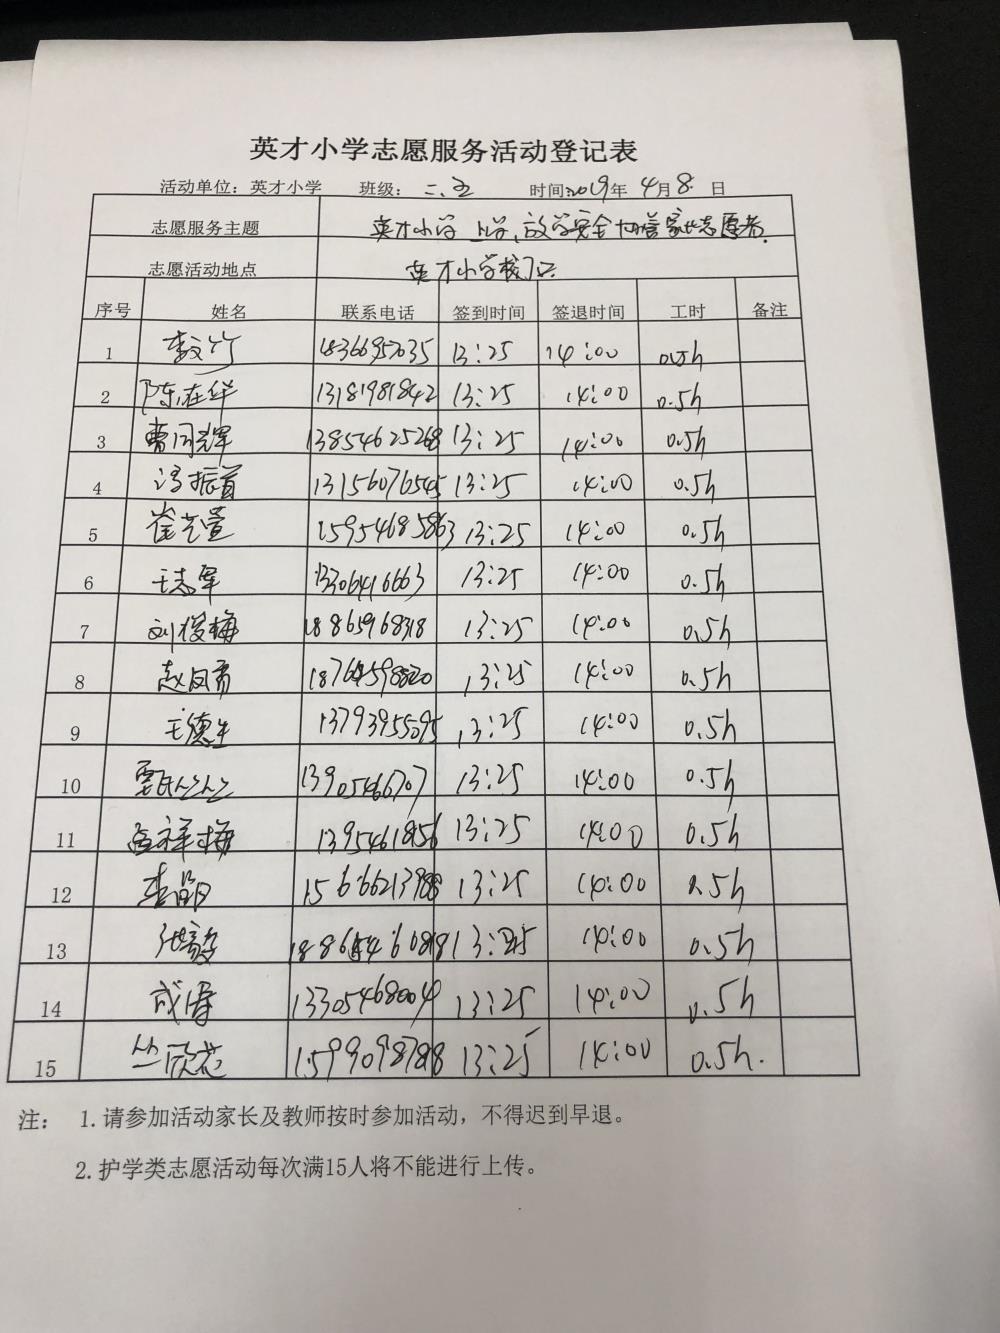 英才小学志愿服务活动登记表
活动单位：英才小学 班级：二、五 时间：2019年 4月 8日
志愿服务主题 英才小学 上学、放学安全 志愿者
志愿活动地点 英才小学校门口
序号 姓名 联系电话 签到时间 签退时间 工时 备注
1 李文竹 18366952035 13:25 14:00 0.5h
2 陈在华 13181981842 13:25 14:00 0.5h
3 曹同辉 13854625268 13:25 14:00 0.5h
4 冯振首 13156076545 13:25 14:00 0.5h
5 崔艺萱 15954685863 13:25 14:00 0.5h
6 王志军 13306416663 13:25 14:00 0.5h
7 刘俊梅 18865968318 13:25 14:00 0.5h
8 13:25 14:00 0.5h
9 王德生 13793955095 13:25 14:00 0.5h
10 13905466707 13:25 14:00 0.5h
11 1395461856 13:25 14:00 0.5h
12 李晶 13:25 14:00 0.5h
13 13:25 14:00 0.5h
14 成涛 13305468004 13:25 14:00 0.5h
15 丛欣花 1599098788 13:25 14:00 0.5h.
注： 1.请参加活动家长及教师按时参加活动，不得迟到早退。
2.护学类志愿活动每次满15人将不能进行上传。